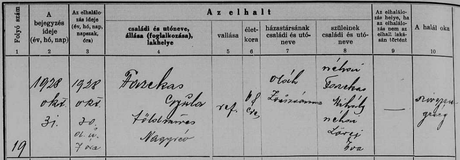 Az elhalt
Folyó szám
A bejegyzés ideje (év, hó, nap)
Az elhalálozás ideje (év, hó, nap, napszak, óra)
családi és utóneve, állása (foglalkozása), lakhelye
vallása
életkora
házastársának családi és utóneve
szüleinek családi és utóneve
Az elhalálozás helye, ha az elhalálozás nem az elhalt lakásán történt
A halál oka
1 2 3 4 5 6 7 8 9 10
19
1928
okt.
31.
1928
okt.
30.
7 óra
Fazekas
Gyula
földműves
Nagyrév
ref.
Oláh
Zsuzsánna
néhai
Fazekas
Mihály
néhai